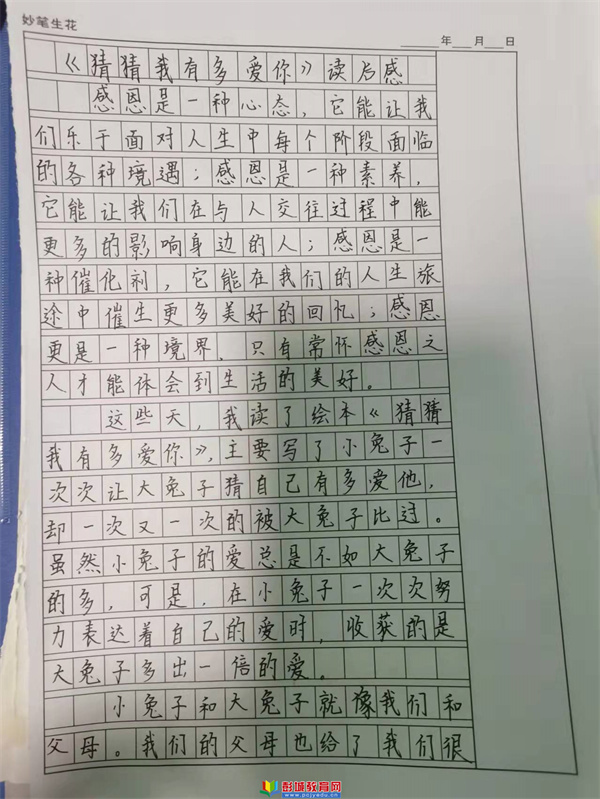 妙笔生花
年 月 日
《猜猜我有多爱你》读后感
感恩是一种心态，它能让我
们乐于面对人生中每个阶段面临
的各种境遇；感恩是一种素养，
它能让我们在与人交往过程中能
更多的影响身边的人；感恩是一
种催化剂，它能在我们的人生旅
途中催生更多美好的回忆；感恩
更是一种境界，只有常怀感恩之
人才能体会到生活的美好。
这些天，我读了绘本《猜猜
我有多爱你》，主要写了小兔子一
次次让大兔子猜自己有多爱他，
却一次又一次的被大兔子比过。
虽然小兔子的爱总是不如大兔子
的多，可是，在小兔子一次次努
力表达着自己的爱时，收获的是
大兔子多出一倍的爱。
小兔子和大兔子就像我们和
父母。我们的父母也给了我们很
彭城教育网
www.pcjyedu.cn